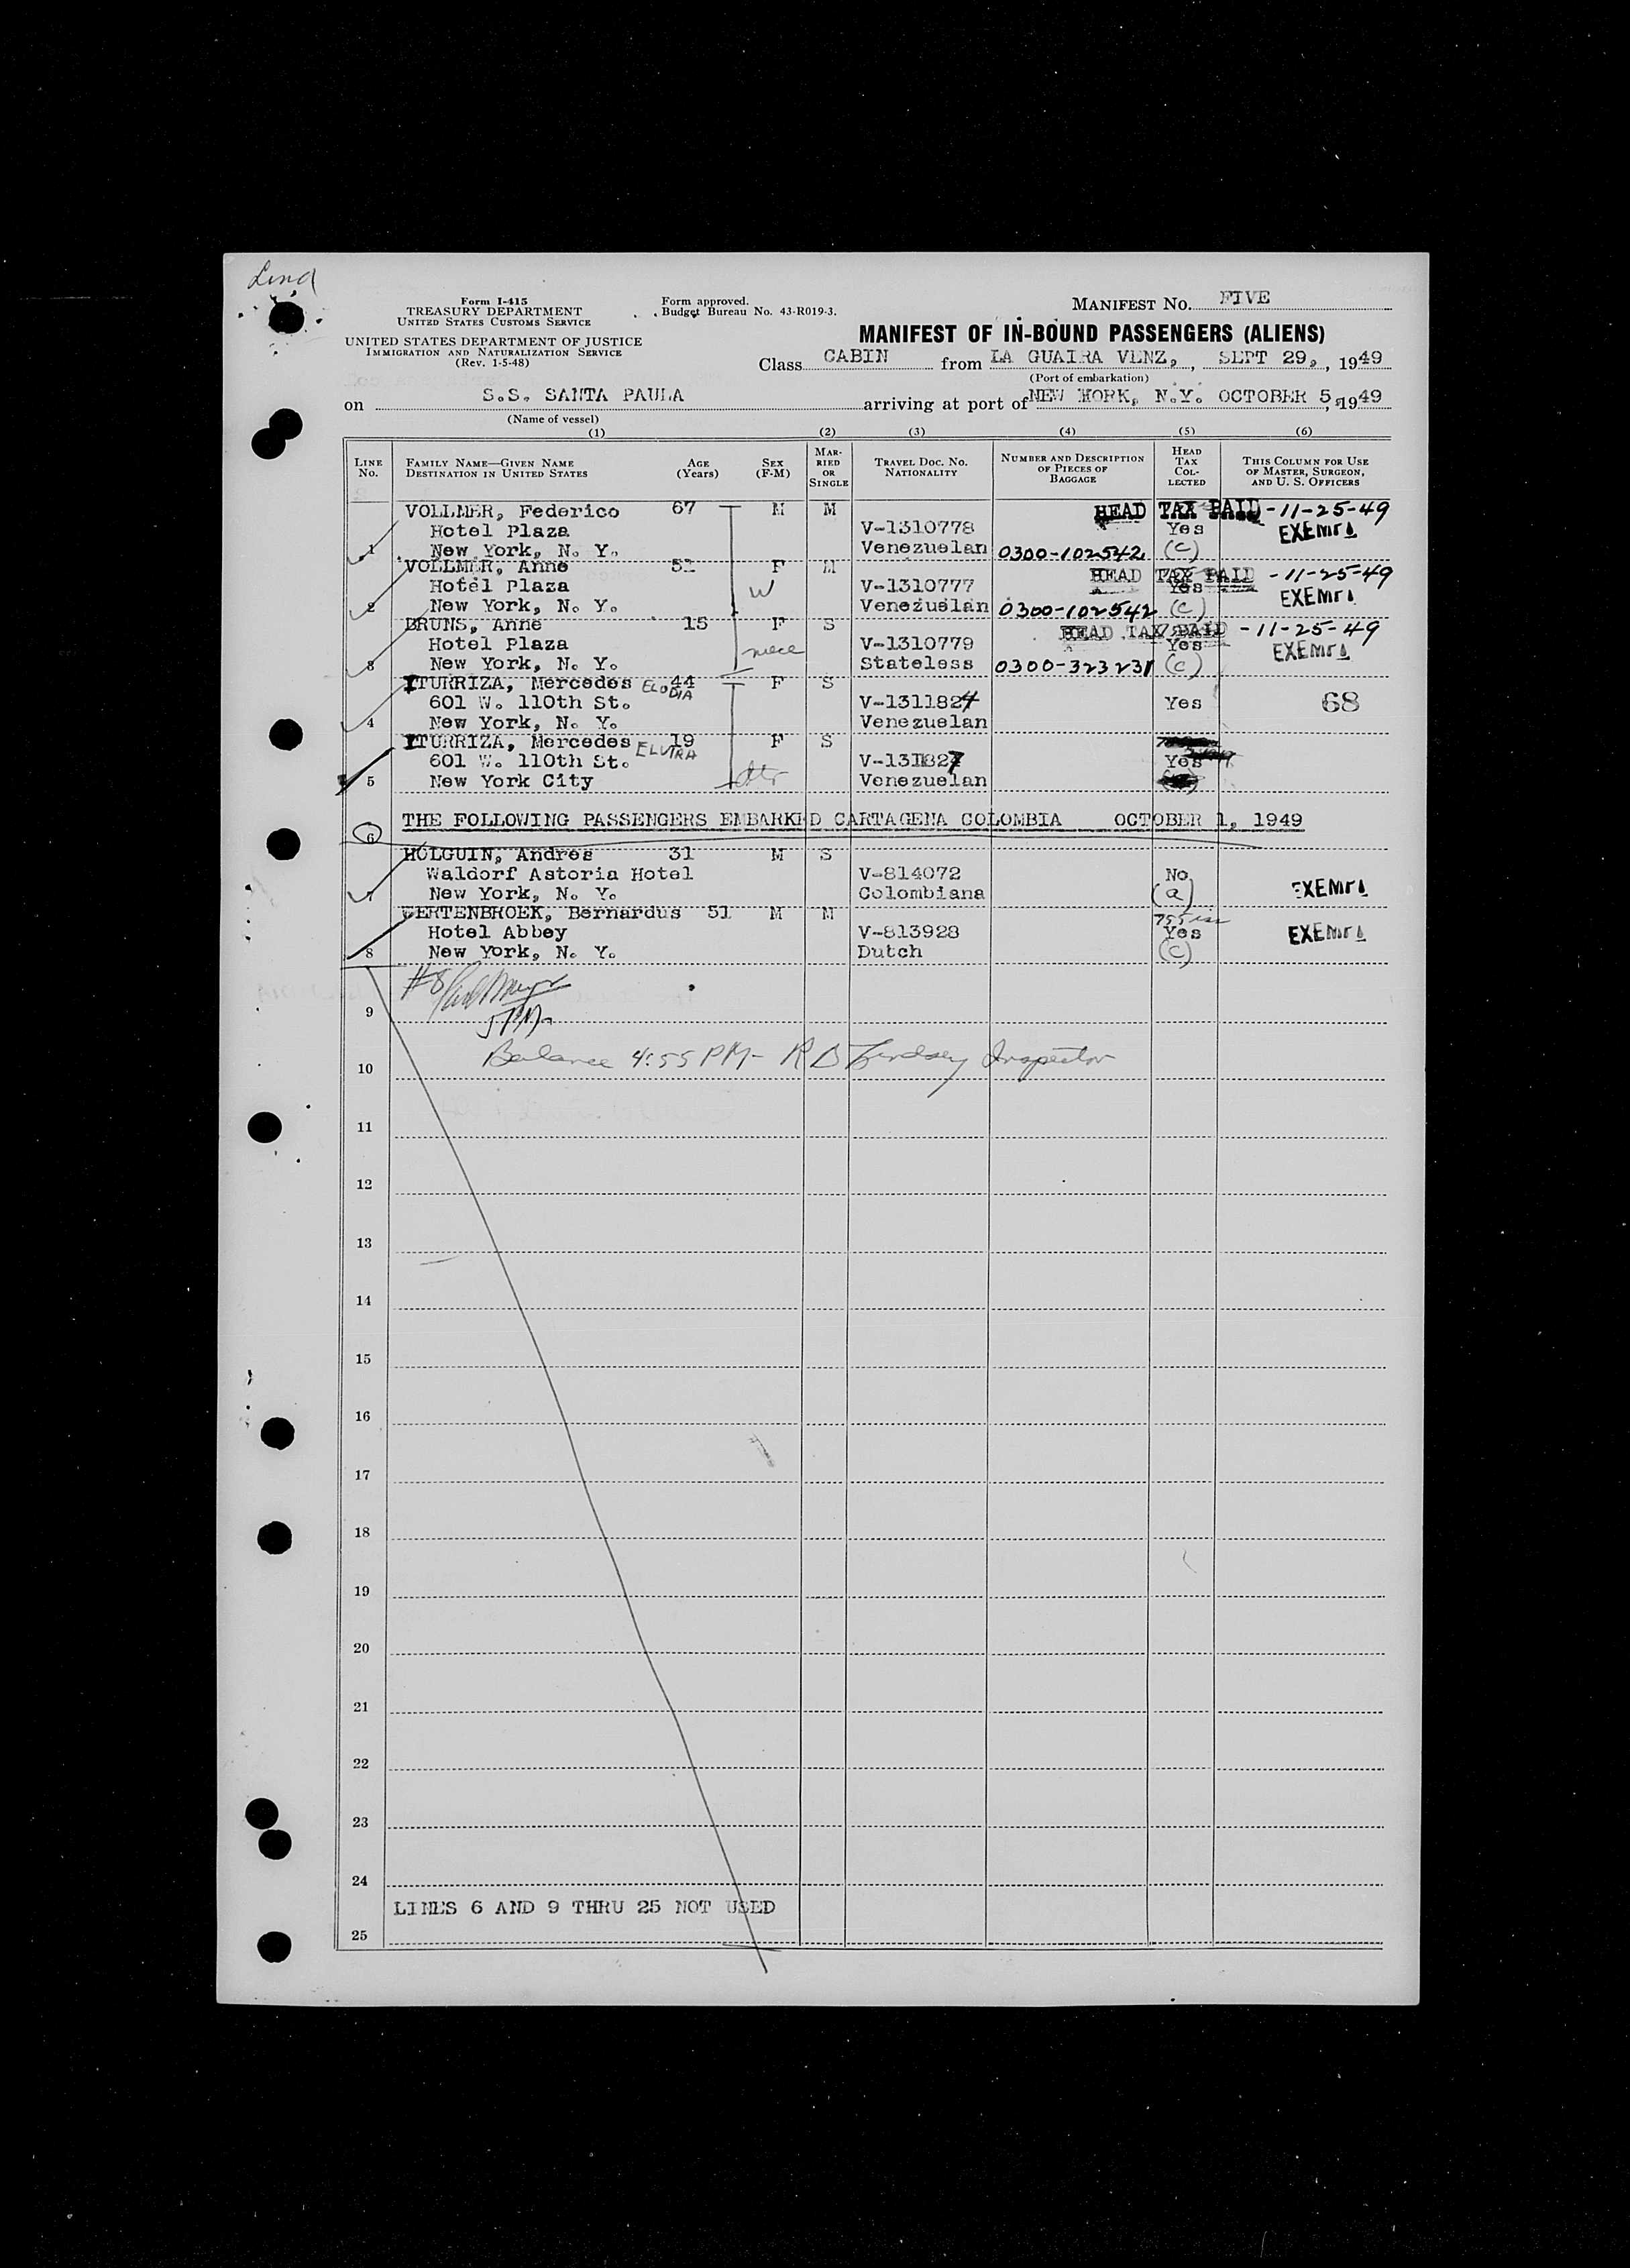 Lind
Form I-415
TREASURY DEPARTMENT
UNITED STATES CUSTOMS SERVICE
UNITED STATES DEPARTMENT OF JUSTICE
IMMIGRATION AND NATURALIZATION SERVICE
(Rev. 1-5-48)
Form approved.
Budget Bureau No. 43-R019-3.
MANIFEST NO. FIVE
MANIFEST OF IN-BOUND PASSENGERS (ALIENS)
Class CABIN from LA GUAIRA VENZ, , SEPT 29, , 1949
(Port of embarkation)
on S.S. SANTA PAULA arriving at port of NEW YORK, N.Y. OCTOBER 5, 1949
(Name of vessel)
(1) (2) (3) (4) (5) (6)
LINE NO. FAMILY NAME—GIVEN NAME DESTINATION IN UNITED STATES AGE (Years) SEX (F-M) MARRIED OR SINGLE TRAVEL DOC. NO. NATIONALITY NUMBER AND DESCRIPTION OF PIECES OF BAGGAGE HEAD TAX COLLECTED THIS COLUMN FOR USE OF MASTER, SURGEON, AND U. S. OFFICERS
VOLLMER, Federico 67 M M HEAD TAX PAID -11-25-49
Hotel Plaza V-1310778 Yes EXEMPT
1 New York, N. Y. Venezuelan 0300-102542 (c)
VOLLMER, Anne 51 F M HEAD TAX PAID -11-25-49
Hotel Plaza W V-1310777 Yes EXEMPT
2 New York, N. Y. Venezuelan 0300-102542 (c)
BRUNS, Anne 15 F S HEAD TAX PAID -11-25-49
Hotel Plaza niece V-1310779 Yes EXEMPT
3 New York, N. Y. Stateless 0300-323231 (c)
ITURRIZA, Mercedes ELODIA 44 F S
601 W. 110th St. V-1311824 Yes 68
4 New York, N. Y. Venezuelan
ITURRIZA, Mercedes ELVIRA 19 F S
601 W. 110th St. V-1311827 Yes
5 New York City dtr Venezuelan
6 THE FOLLOWING PASSENGERS EMBARKED CARTAGENA COLOMBIA OCTOBER 1, 1949
HOLGUIN, Andres 31 M S
Waldorf Astoria Hotel V-814072 No
7 New York, N. Y. Colombiana (a) EXEMPT
WERTENBROEK, Bernardus 51 M M
Hotel Abbey V-813928 Yes EXEMPT
8 New York, N. Y. Dutch (c)
#8
9 5 PM
10 Balance 4:55 PM - R D Lindsey Inspector
11
12
13
14
15
16
17
18
19
20
21
22
23
24
LINES 6 AND 9 THRU 25 NOT USED
25